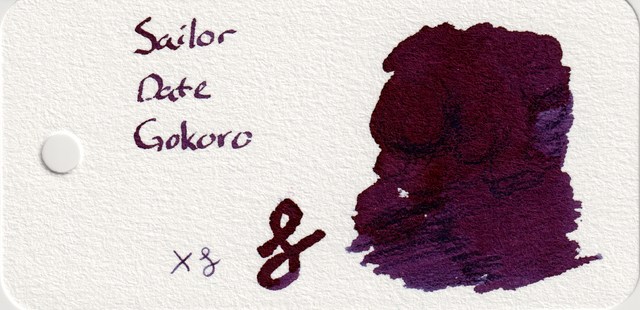 Sailor
Date
Gokoro
X &
&